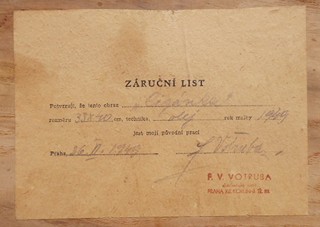 ZÁRUČNÍ LIST
Potvrzuji, že tento obraz „Cikánka“
rozměru cm, technika olej rok malby 1949
jest mojí původní prací
Praha 26. II. 1949 F Votruba
F. V. VOTRUBA
PRAHA